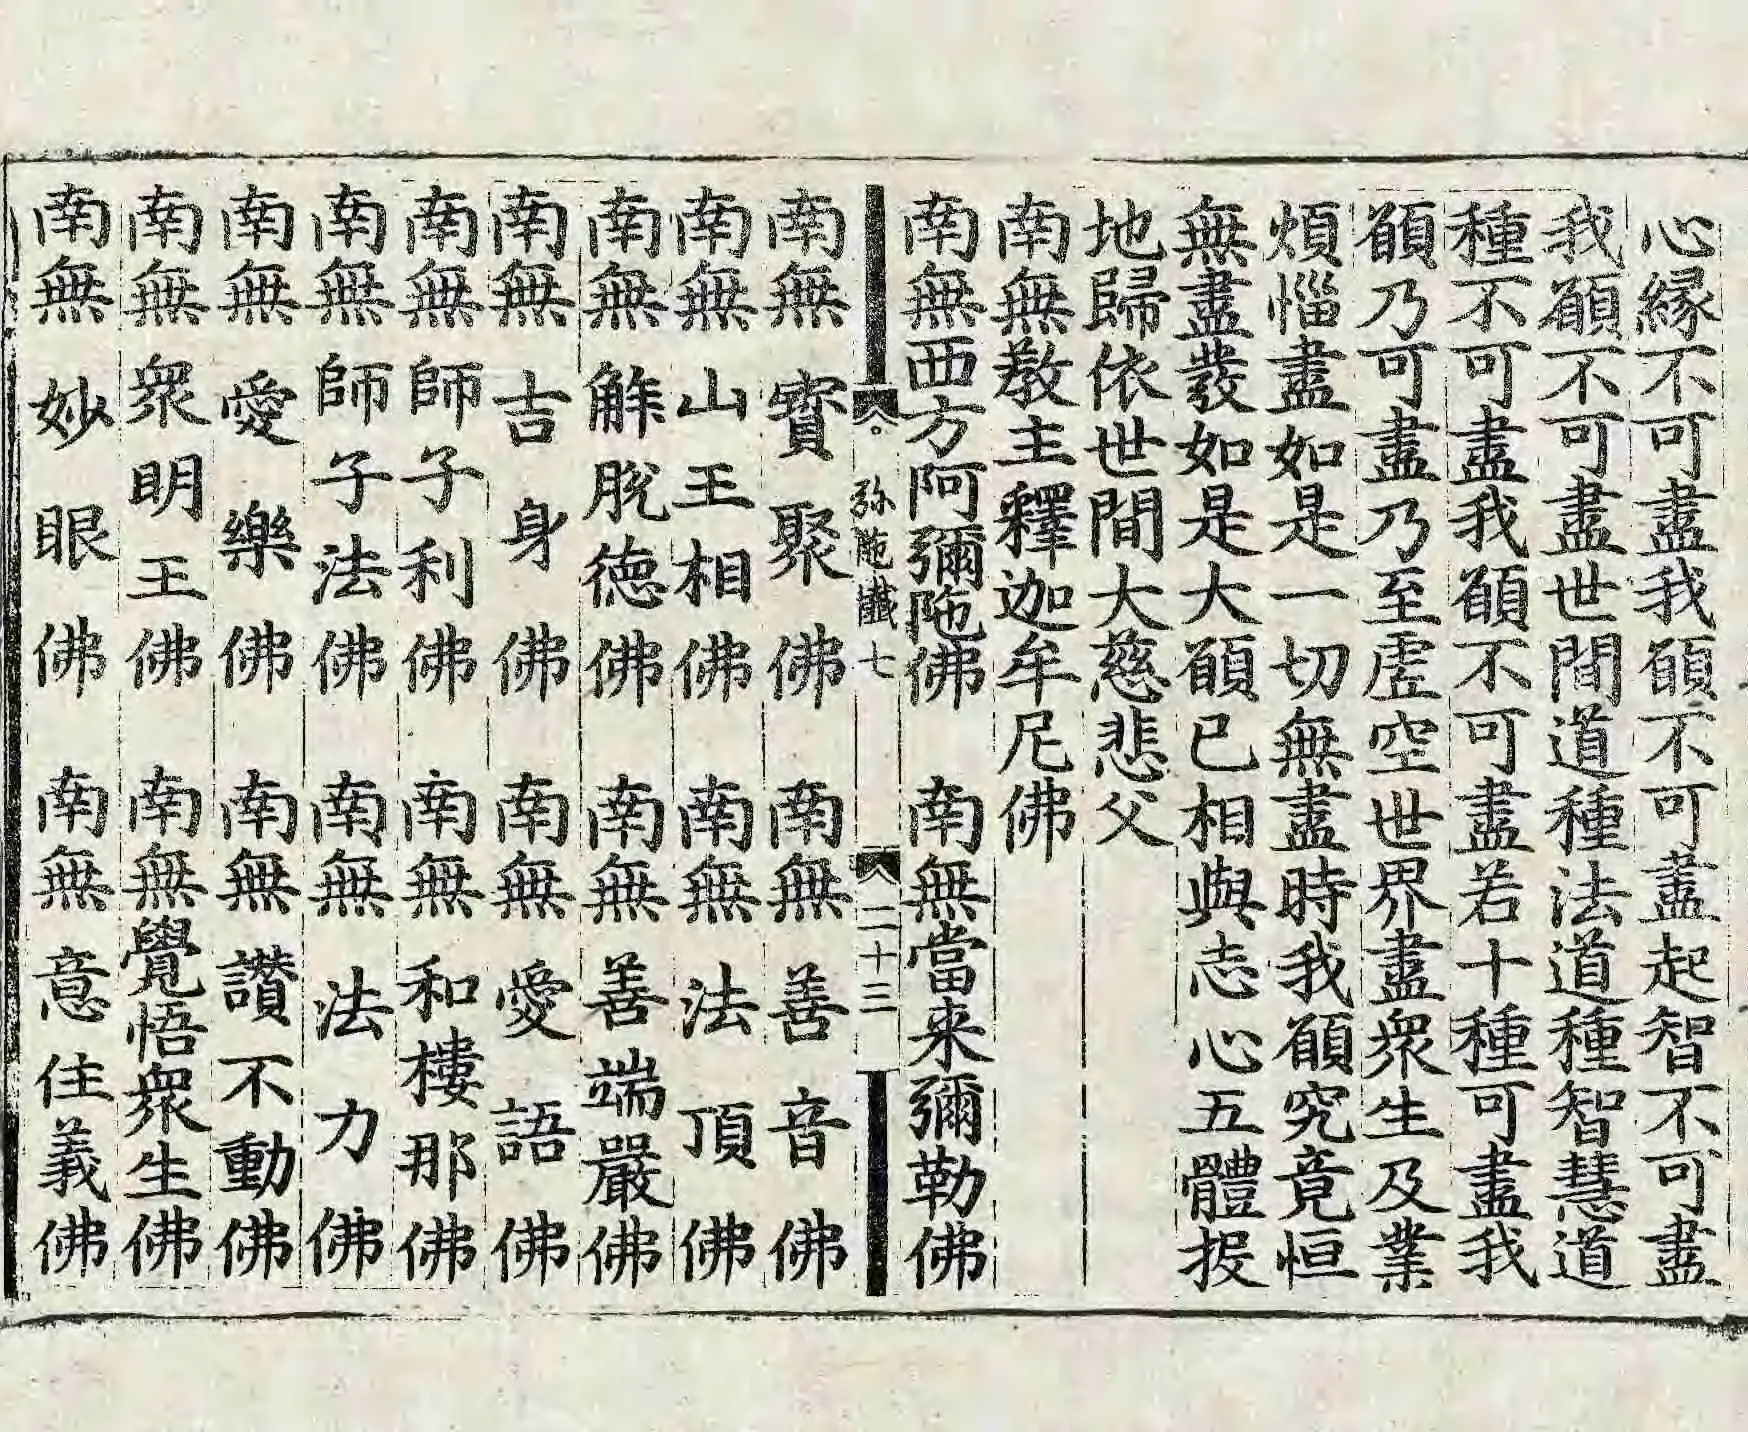 心緣不可盡我願不可盡起智不可盡
我願不可盡世間道種法道種智慧道
種不可盡我願不可盡若十種可盡我
願乃可盡乃至虛空世界盡眾生及業
煩惱盡如是一切無盡時我願究竟恒
無盡發如是大願已相與志心五體投
地歸依世間大慈悲父
南無教主釋迦牟尼佛
南無西方阿彌陁佛 南無當来彌勒佛
弥陁懺七 二十三
南無寳聚佛 南無善音佛
南無山王相佛 南無法頂佛
南無解脫德佛 南無善端嚴佛
南無吉身佛 南無愛語佛
南無師子利佛 南無和樓那佛
南無師子法佛 南無法力佛
南無愛樂佛 南無讃不動佛
南無眾明王佛 南無覺悟眾生佛
南無妙眼佛 南無意住義佛